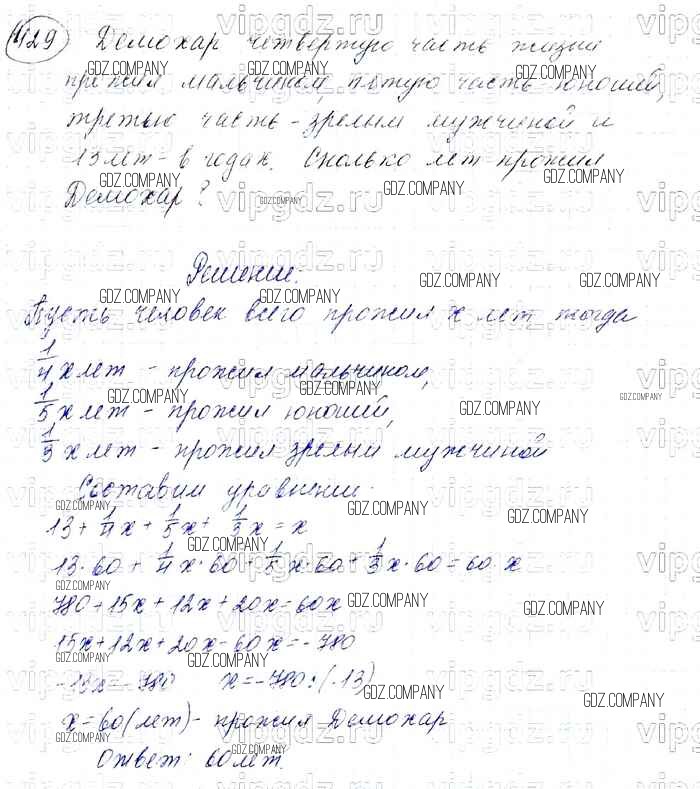 429 Демохар четвертую часть жизни
прожил мальчиком, пятую часть - юношей,
третью часть - зрелым мужчиной и
13 лет - в годах. Сколько лет прожил
Демохар?
Решение:
Пусть человек всего прожил x лет тогда
1/4 x лет - прожил мальчиком,
1/5 x лет - прожил юношей,
1/3 x лет - прожил зрелым мужчиной
Составим уравнение:
13 + 1/4 x + 1/5 x + 1/3 x = x
13·60 + 1/4 x·60 + 1/5 x·60 + 1/3 x·60 = 60·x
780 + 15x + 12x + 20x = 60x
15x + 12x + 20x - 60x = -780
-13x = -780 x = -780 : (-13)
x = 60 (лет) - прожил Демохар
Ответ: 60 лет.
vipgdz.ru
GDZ.COMPANY